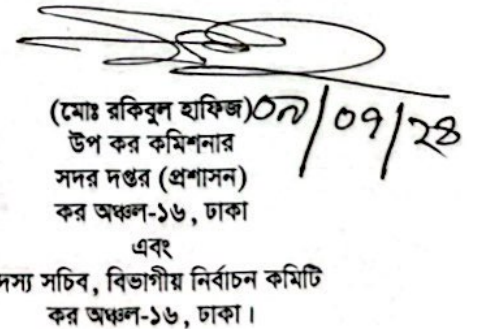 (মোঃ রকিবুল হাফিজ) ০৯/০৭/২৪
উপ কর কমিশনার
সদর দপ্তর (প্রশাসন)
কর অঞ্চল-১৬, ঢাকা
এবং
দস্য সচিব, বিভাগীয় নির্বাচন কমিটি
কর অঞ্চল-১৬, ঢাকা।